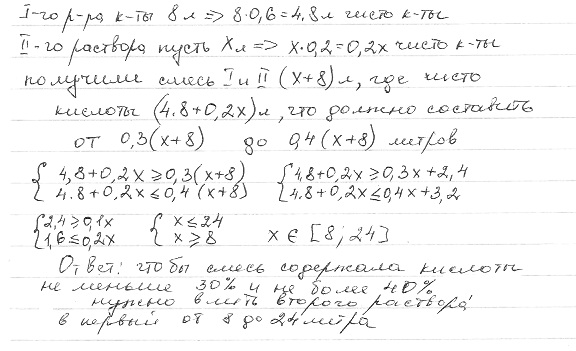 I-го р-ра к-ты 8 л => 8·0,6=4.8л чисто к-ты
II-го раствора пусть Xл => x·0,2=0,2x чисто к-ты
получили смесь I и II (x+8) л, где чисто
кислоты (4.8+0,2x)л, что должно составить
от 0,3(x+8) до 0,4(x+8) литров
{4,8+0,2x≥0,3(x+8) {4,8+0,2x≥0,3x+2,4
4.8+0,2x≤0,4(x+8) 4.8+0,2x≤0,4x+3,2
{2,4≥0,1x {x≤24
1,6≤0,2x x≥8 x ∈ [8; 24]
Ответ: чтобы смесь содержала кислоты
не меньше 30% и не более 40%
нужно влить второго раствора
в первый от 8 до 24 литра